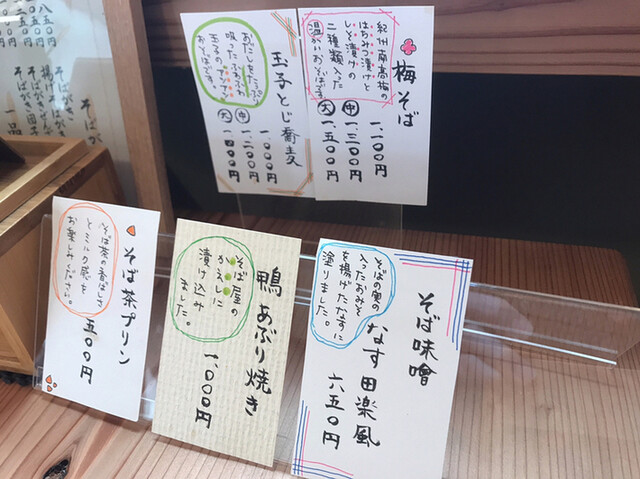 梅そば
紀州南高梅の
はちみつ漬けと
しそ漬けの
二種類入った
温かいおそばです
一、一〇〇円
中 一、三〇〇円
大 一、五〇〇円
玉子とじ蕎麦
おだしをたっぷり
吸ったふわふわ
玉子の
おそばです。
一、〇〇〇円
中 一、二〇〇円
大 一、四〇〇円
そば味噌
なす田楽風
六五〇円
そばの実の
入ったおみそ
を揚げたなすに
塗りました。
鴨あぶり焼き
一、〇〇〇円
そば屋の
かえしに
漬け込み
ました。
そば茶プリン
五〇〇円
そば茶の香ばしさ
お楽しみください。
八五〇円
そばがき
揚げそばがき
そばがき
一品